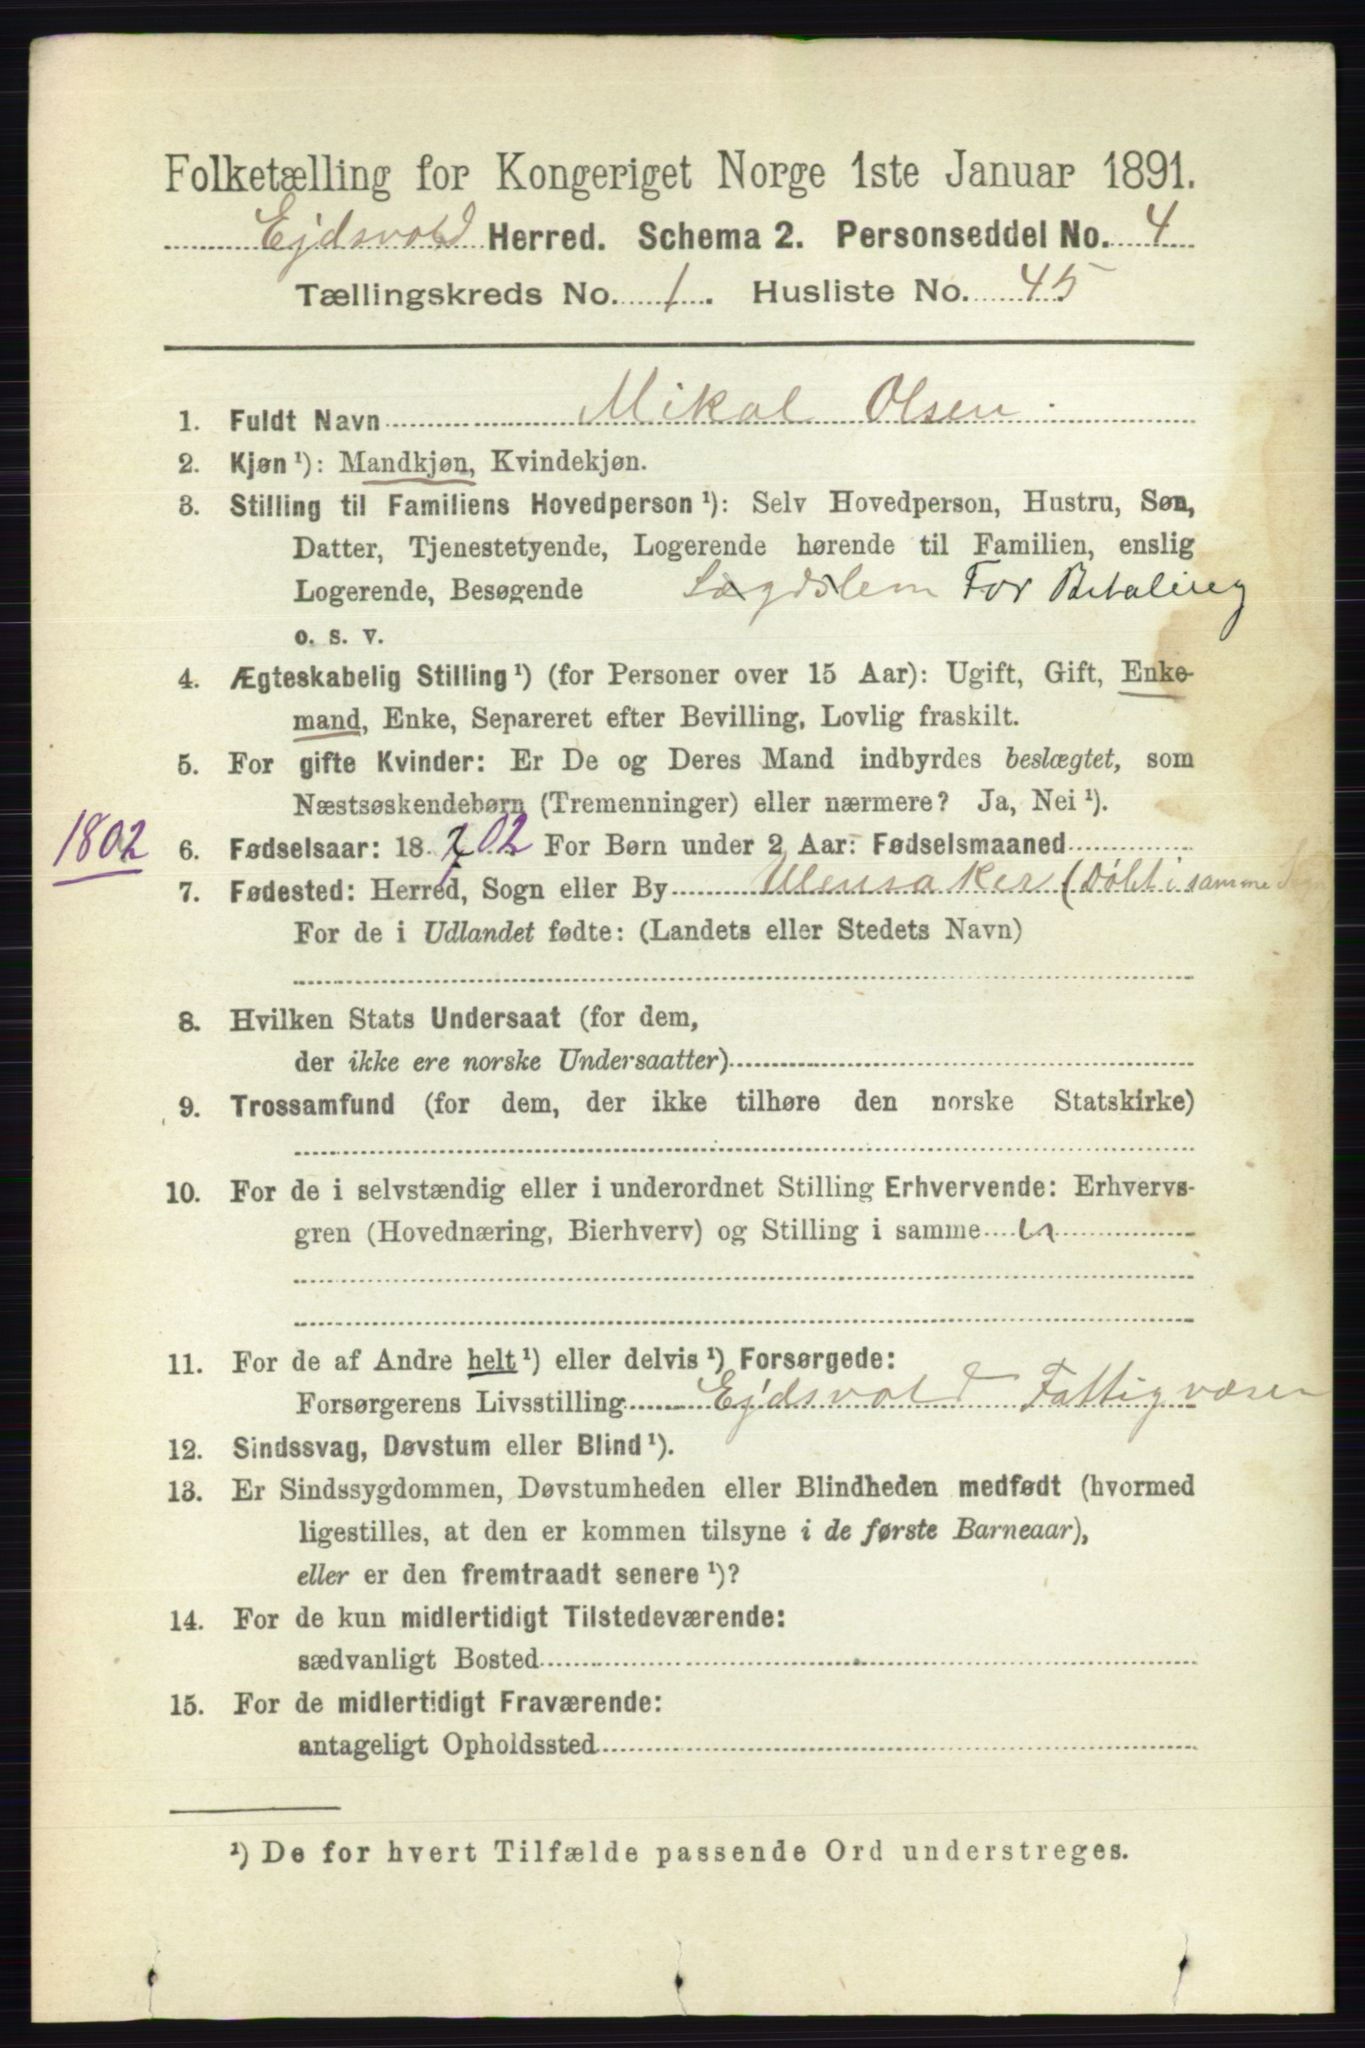 Folketælling for Kongeriget Norge 1ste Januar 1891.
Ejdsvold Herred. Schema 2. Personseddel No. 4
Tællingskreds No. 1. Husliste No. 45
1. Fuldt Navn Mikal Olsen.
2. Kjøn ¹): Mandkjøn, Kvindekjøn.
3. Stilling til Familiens Hovedperson ¹): Selv Hovedperson, Hustru, Søn,
Datter, Tjenestetyende, Logerende hørende til Familien, enslig
Logerende, Besøgende Lægdslem For Betaling
o. s. v.
4. Ægteskabelig Stilling ¹) (for Personer over 15 Aar): Ugift, Gift, Enke-
mand, Enke, Separeret efter Bevilling, Lovlig fraskilt.
5. For gifte Kvinder: Er De og Deres Mand indbyrdes beslægtet, som
Næstsøskendebørn (Tremenninger) eller nærmere? Ja, Nei ¹).
1802 6. Fødselsaar: 18 02 For Børn under 2 Aar: Fødselsmaaned
7. Fødested: Herred, Sogn eller By Ulensaker (Døbt i samme Sogn
For de i Udlandet fødte: (Landets eller Stedets Navn)
8. Hvilken Stats Undersaat (for dem,
der ikke ere norske Undersaatter)
9. Trossamfund (for dem, der ikke tilhøre den norske Statskirke)
10. For de i selvstændig eller i underordnet Stilling Erhvervende: Erhvervs-
gren (Hovednæring, Bierhverv) og Stilling i samme
11. For de af Andre helt ¹) eller delvis ¹) Forsørgede:
Forsørgerens Livsstilling Ejdsvold Fattigvæsen
12. Sindssvag, Døvstum eller Blind ¹).
13. Er Sindssygdommen, Døvstumheden eller Blindheden medfødt (hvormed
ligestilles, at den er kommen tilsyne i de første Barneaar),
eller er den fremtraadt senere ¹)?
14. For de kun midlertidigt Tilstedeværende:
sædvanligt Bosted
15. For de midlertidigt Fraværende:
antageligt Opholdssted
¹) De for hvert Tilfælde passende Ord understreges.